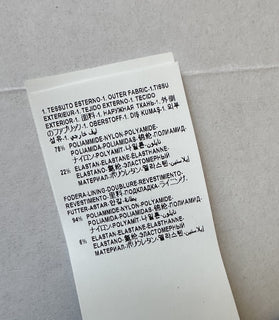 1. TESSUTO ESTERNO-1. OUTER FABRIC-1.TISSU
EXTERIEUR-1. TEJIDO EXTERNO-1. TECIDO
EXTERIOR-1. 面料-1. НАРУЖНАЯ ТКАНЬ-1. 外側
のファブリック-1. OBERSTOFF-1. DIŞ KUMAŞ-1. 외부
섬유-1.
78% POLIAMMIDE-NYLON-POLYAMIDE-
POLIAMIDA-POLIAMIDAS-锦纶-ПОЛИАМИД-
ナイロン-POLYAMIT-나일론-نايلون
22% ELASTAN-ELASTANE-ELASTHANNE-
ELASTANO-氨纶-ЭЛАСТОМЕРНЫЙ
МАТЕРИАЛ-ポリウレタン-엘라스탄-إيلاستين
FODERA-LINING-DOUBLURE-REVESTIMIENTO-
REVESTIMENTO-里料-ПОДКЛАДКА-ライニング-
FUTTER-ASTAR-안감-بطانة
94% POLIAMMIDE-NYLON-POLYAMIDE-
POLIAMIDA-POLIAMIDAS-锦纶-ПОЛИАМИД-
ナイロン-POLYAMIT-나일론-نايلون
6% ELASTAN-ELASTANE-ELASTHANNE-
ELASTANO-氨纶-ЭЛАСТОМЕРНЫЙ
МАТЕРИАЛ-ポリウレタン-엘라스탄-إيلاستين